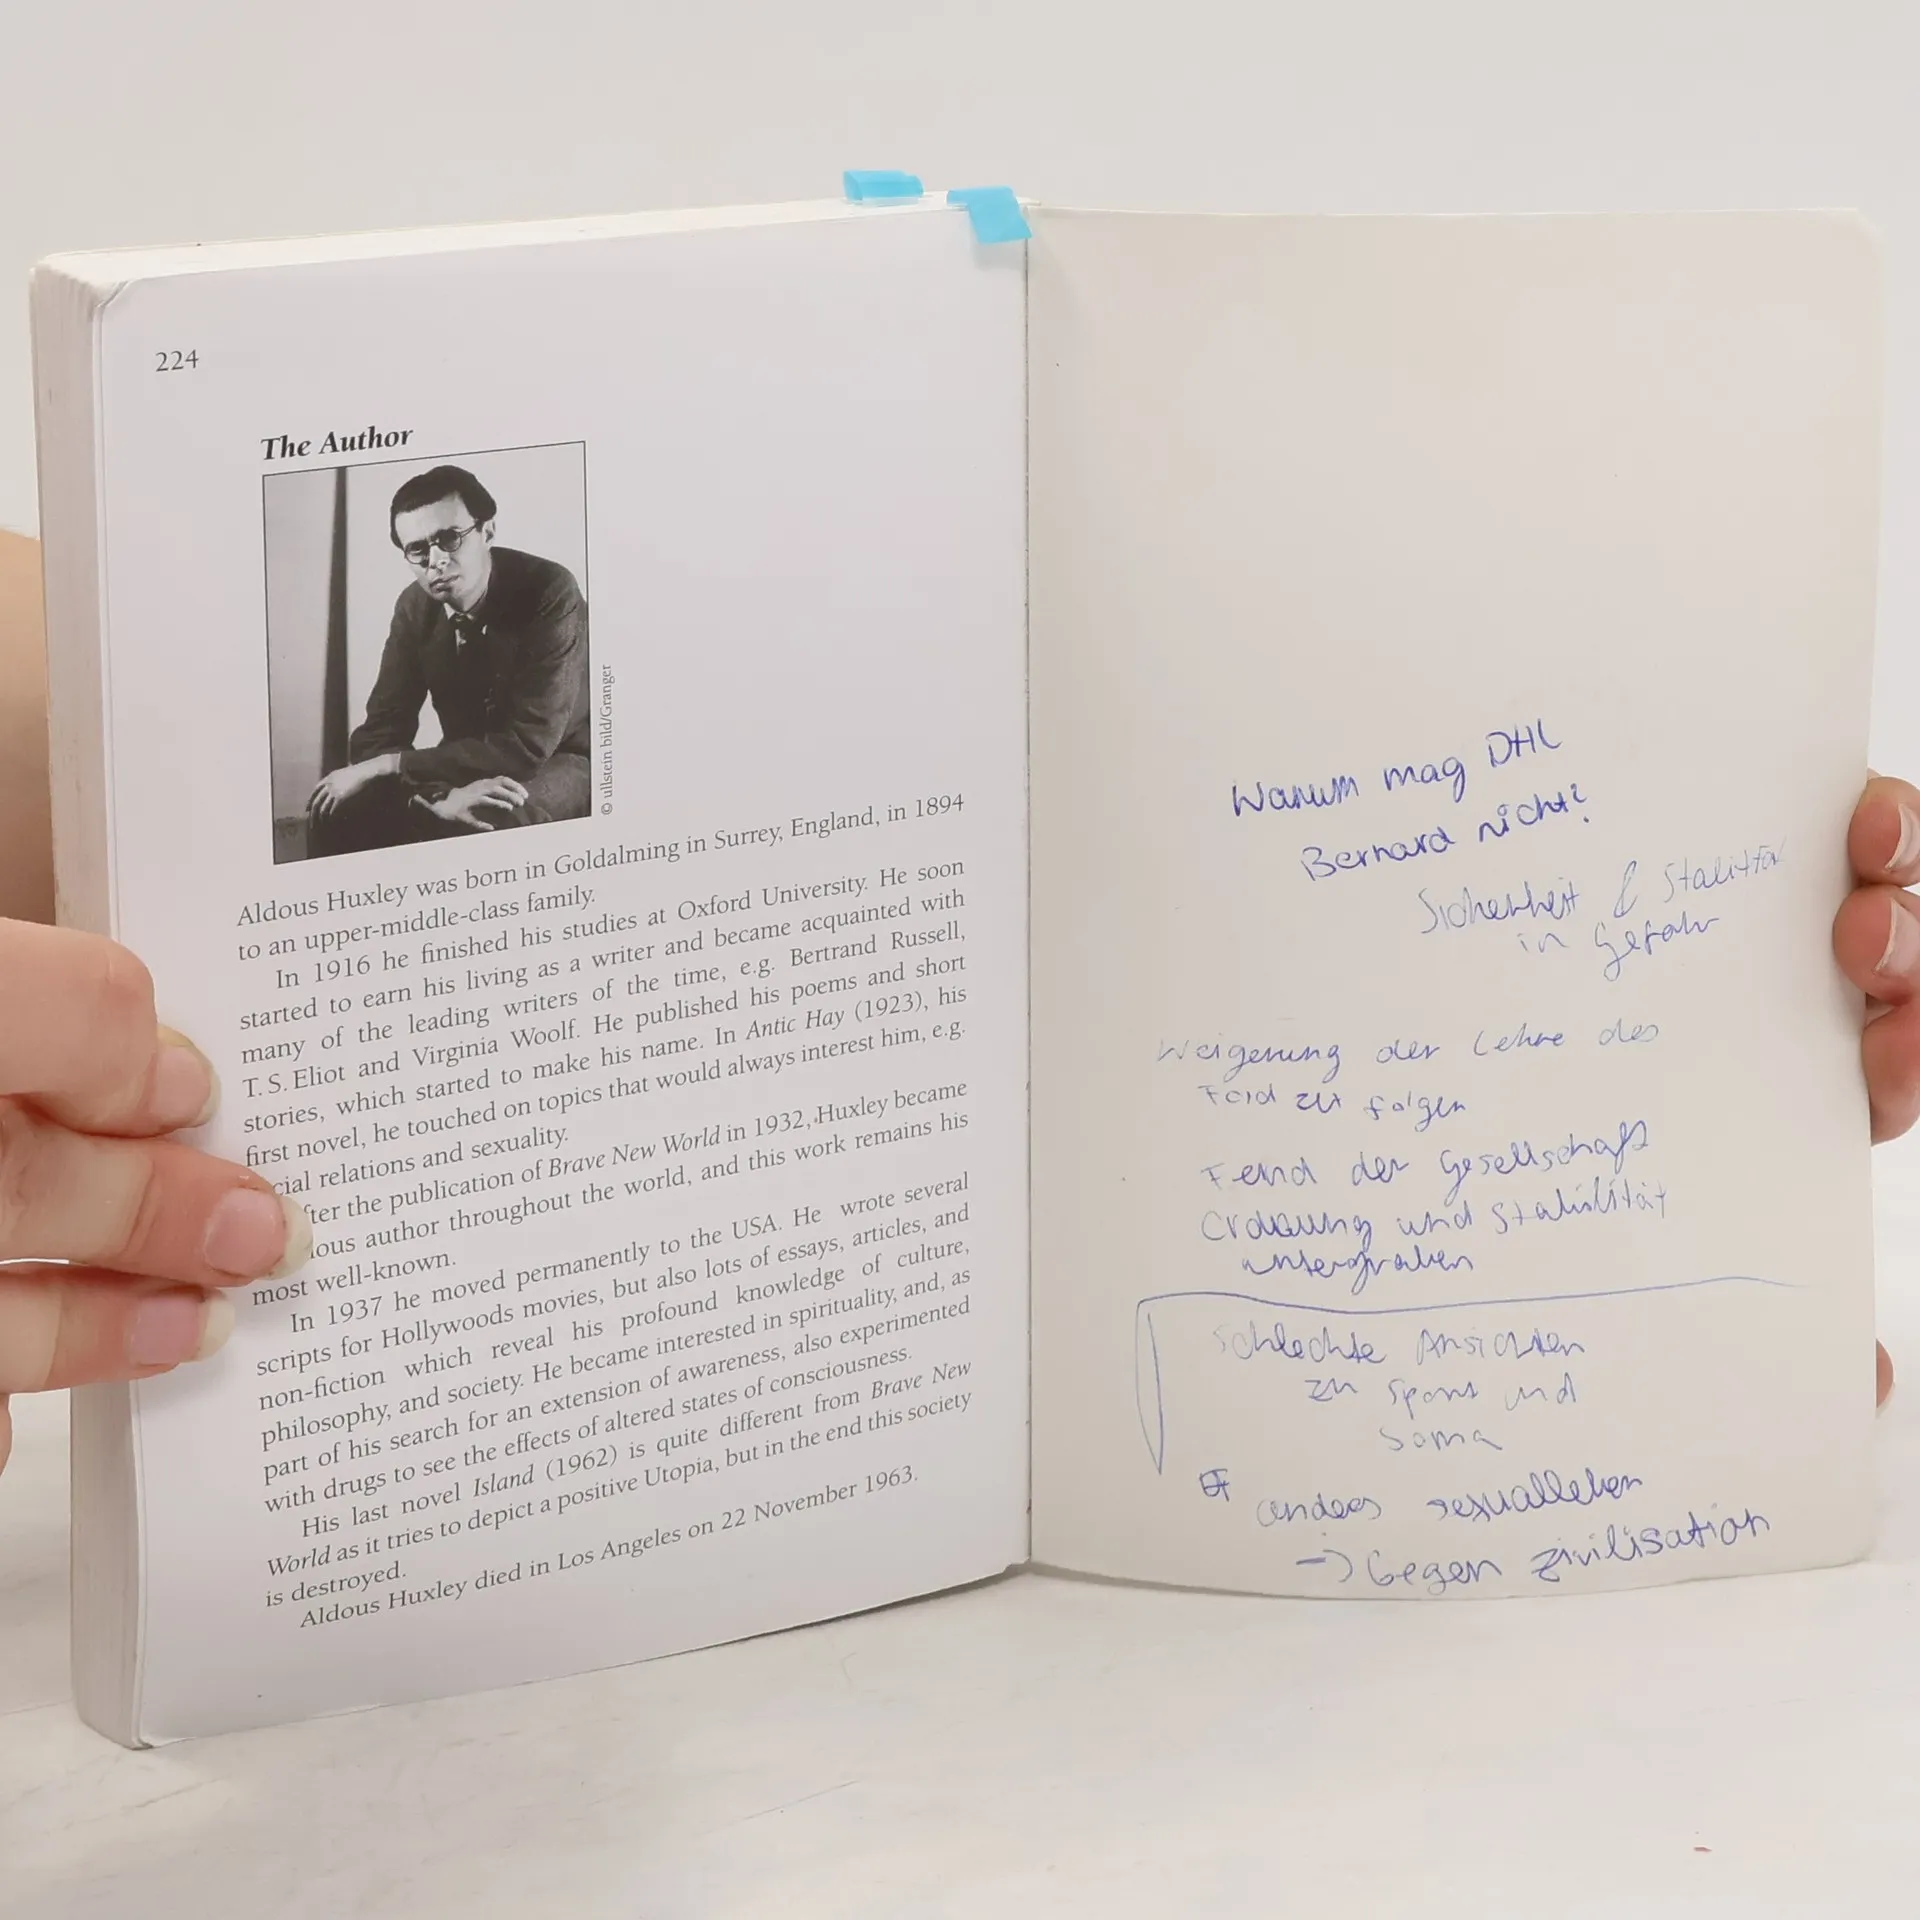 224
The Author
© ullstein bild/Granger
Aldous Huxley was born in Goldalming in Surrey, England, in 1894
to an upper-middle-class family.
In 1916 he finished his studies at Oxford University. He soon
started to earn his living as a writer and became acquainted with
many of the leading writers of the time, e.g. Bertrand Russell,
T. S. Eliot and Virginia Woolf. He published his poems and short
stories, which started to make his name. In Antic Hay (1923), his
first novel, he touched on topics that would always interest him, e.g.
cial relations and sexuality.
fter the publication of Brave New World in 1932, Huxley became
ious author throughout the world, and this work remains his
most well-known.
In 1937 he moved permanently to the USA. He wrote several
scripts for Hollywoods movies, but also lots of essays, articles, and
non-fiction which reveal his profound knowledge of culture,
philosophy, and society. He became interested in spirituality, and, as
part of his search for an extension of awareness, also experimented
with drugs to see the effects of altered states of consciousness.
His last novel Island (1962) is quite different from Brave New
World as it tries to depict a positive Utopia, but in the end this society
is destroyed.
Aldous Huxley died in Los Angeles on 22 November 1963.
Warum mag DHC
Bernard nicht?
Sicherheit &
in Gefahr
Weigerung der Lehre des
Ford zu folgen
Feind der Gesellschaft
und Stabilität
untergraben
Schlechte Ansichten
zu Sport und
Soma
anderes sexualleben
-> Gegen zivilisation